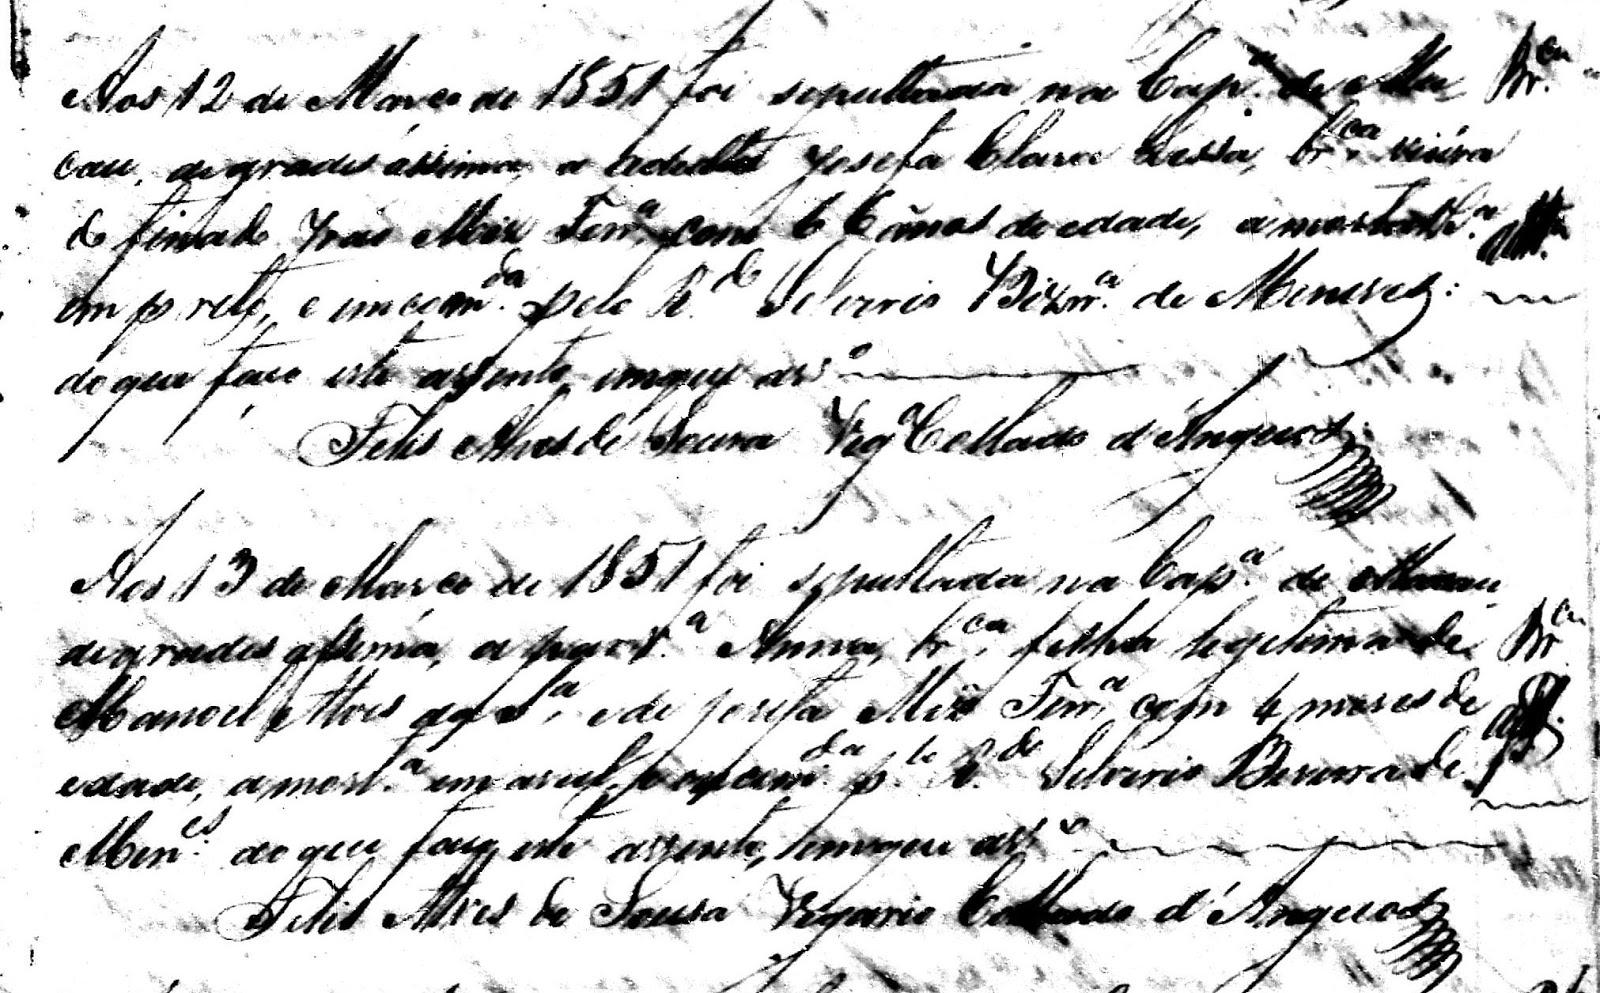 Aos 12 de Março de 1851 foi sepultada na Cap.ª de Ma Br.ca
cau, de grades assima, a adulta Josefa Clara Lessa, br.ca viuva
do finado João Miz Ferr.ª com 66 annos de edade, amortalh.ª
em preto, e imcom.da pelo R.do Silverio Bizrr.ª de Menezes:
do que faço este assento, em que ass.º
Felis Alves de Sousa Vigº Collado d'Angicos
Aos 13 de Março de 1851 foi sepultada na Cap.ª de Macau,
de grades assima, a parv.ª Anna, br.ca, filha legitima de Br.ca
Manoel Alves da S.ª, e de Josefa Miz Ferr.ª com 4 meses de
edade, amort.ª em asul, encom.da p.lo R.do Silverio Beserra de
Men.es do que faço este assento, em que ass.º
Felis Alves de Sousa Vegario Collado d'Angicos